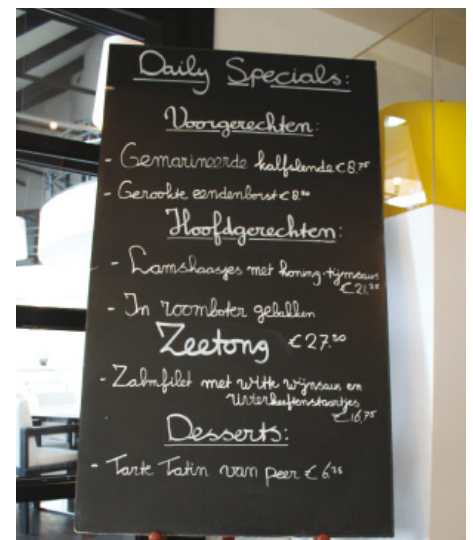 Daily Specials:
Voorgerechten:
- Gemarineerde kalfslende €8.75
- Gerookte eendenborst €8.50
Hoofdgerechten:
- Lamshaasjes met honing-tijmsaus
€21.50
- In roomboter gebakken
Zeetong €27.50
- Zalmfilet met witte wijnsaus en
rivierkreeftenstaartjes
€16,75
Desserts:
- Tarte Tatin van peer €6.75